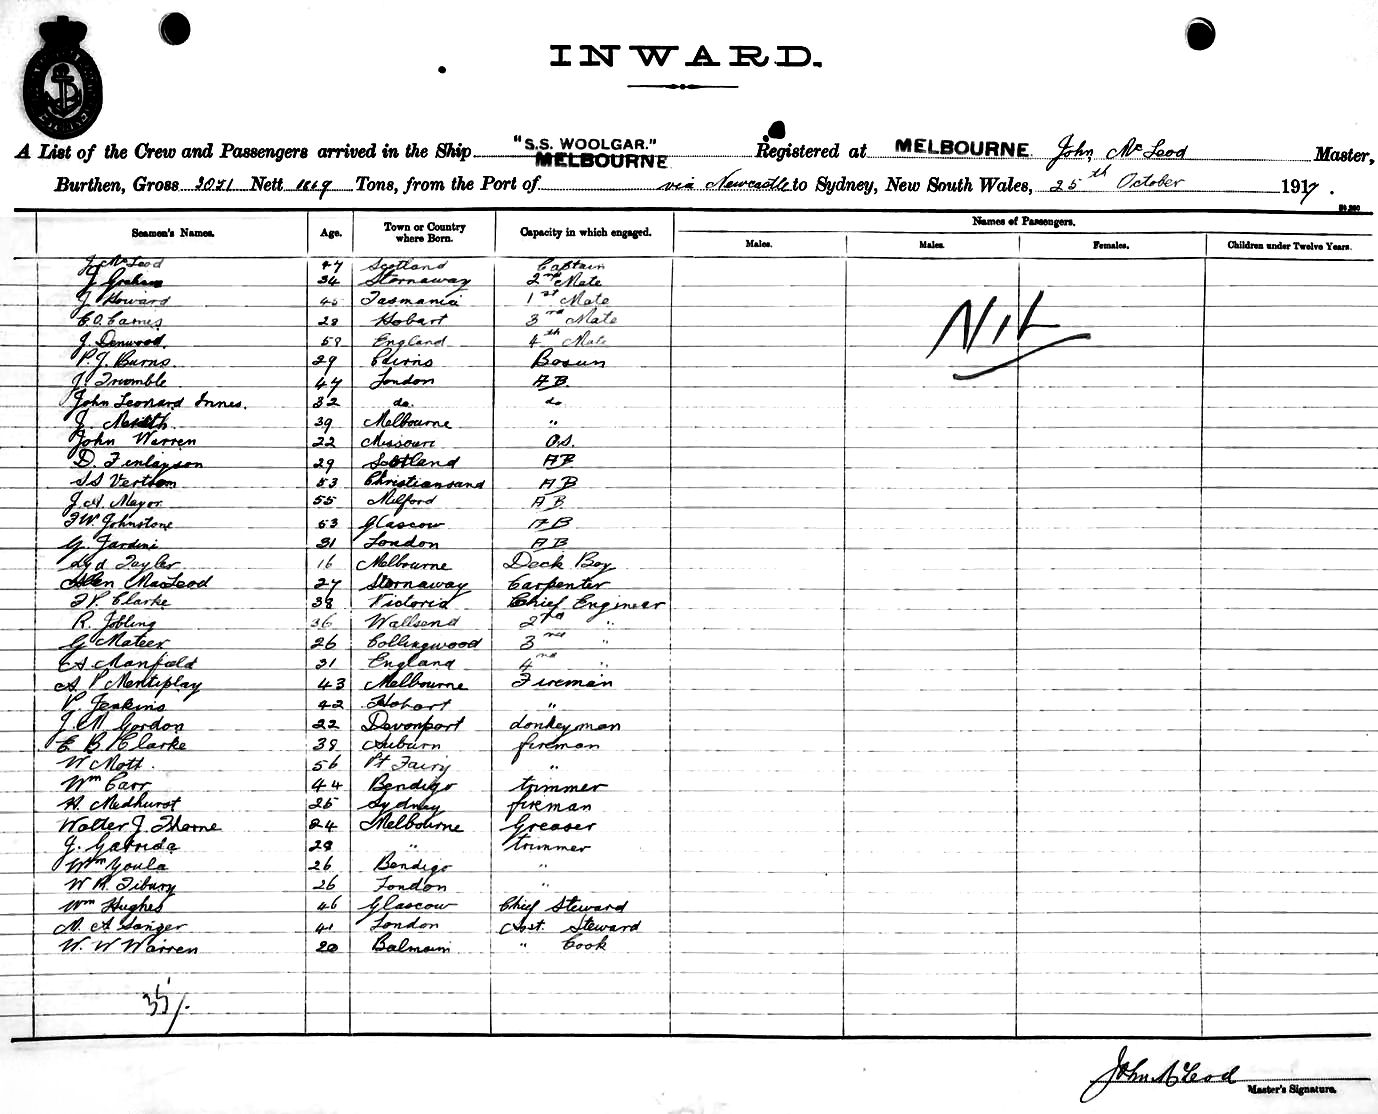 INWARD.
A List of the Crew and Passengers arrived in the Ship "S.S. WOOLGAR." MELBOURNE Registered at MELBOURNE John McLeod Master,
Burthen, Gross 3021 Nett 1869 Tons, from the Port of via Newcastle to Sydney, New South Wales, 25th October 1917.
Names of Passengers.
Seamen's Names. Age. Town or Country where Born. Capacity in which engaged. Males. Males. Females. Children under Twelve Years.
J McLeod 47 Scotland Captain
J Graham 34 Stornaway 2nd Mate
J Howard 45 Tasmania 1st Mate
E.O. Eames 28 Hobart 3rd Mate
J. Denwood 58 England 4th Mate
P.J. Burns 29 Cairns Bosun
J. Trumble 47 London AB.
John Leonard Innes. 32 do. do
J. 39 Melbourne "
John Warren 22 Missouri O.S.
D. Finlayson 29 Scotland AB
53 Christiansand AB
J.A. Mayor 55 Milford AB
F.W. Johnstone 53 Glascow AB
G. Jardini 31 London AB
Syd Tayler 16 Melbourne Deck Boy
MacLeod 27 Stornaway Carpenter
F P. Clarke 38 Victoria Chief Engineer
R. Jobling 36 Wallsend 2nd "
G Mateer 26 Collingwood 3rd "
Manfield 31 England 4rd "
A. P Mentiplay 43 Melbourne Fireman
P. Jenkins 42 Hobart "
J. M Gordon 22 Devonport donkeyman
E B. Clarke 38 Auburn fireman
W Mott. 56 Pt Fairy "
Wm Carr 44 Bendigo trimmer
H. Medhurst 25 Sydney fireman
Walter J. Thorne 24 Melbourne Greaser
J. Gatrida 28 " trimmer
Wm Youla 26 Bendigo "
W R. Tibury 26 London "
Wm Hughes 46 Glascow Chief Steward
N. A Sanger 41 London Asst. Steward
W. W Warren 20 Balmain " Cook
NIL
35/.
John McLeod
Master's Signature.